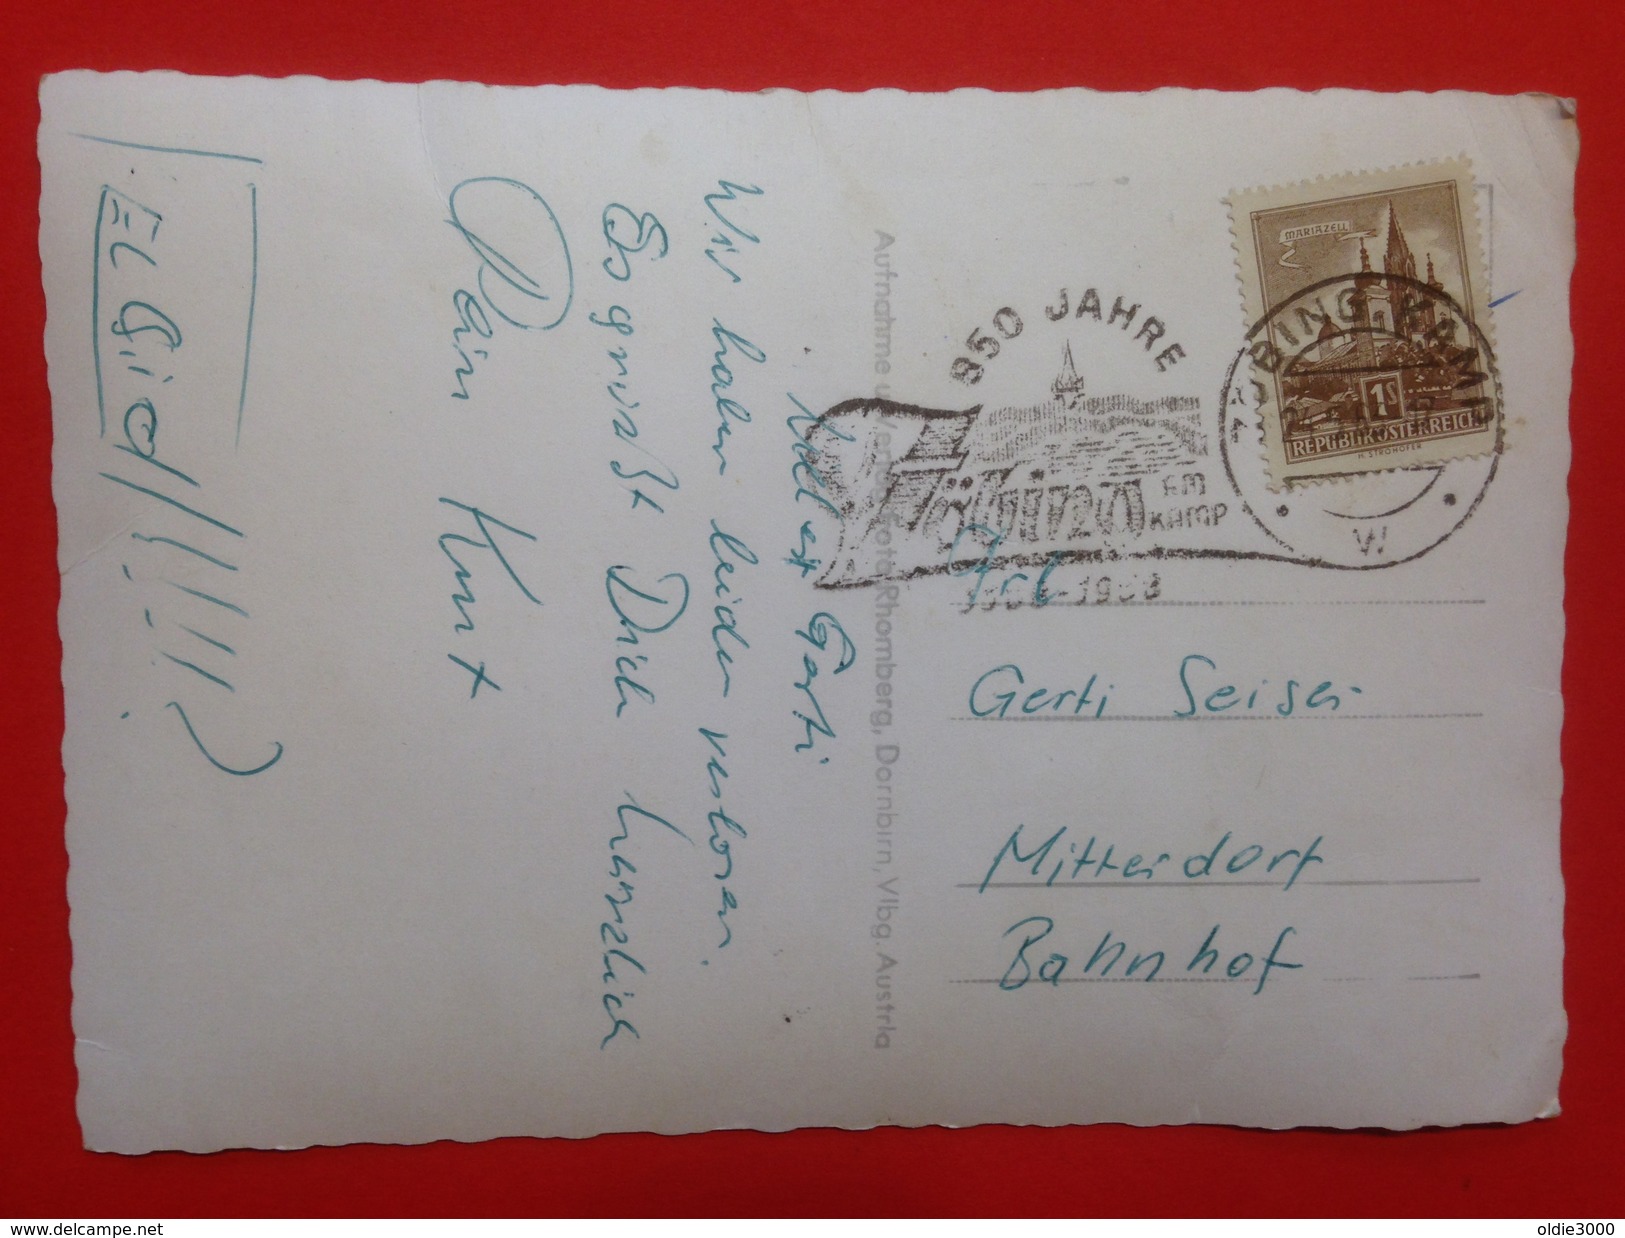 Gerti
Wir haben leider verloren.
Es grüßt Dich herzlich
Dein Kurt
Aufnahme u. Verlag Foto Rhomberg, Dornbirn, Vlbg. Austria
850 JAHRE
Zöbing AM
KAMP
-1958
ZÖBING, KAMP
MARIAZELL
1S
REPUBLIK ÖSTERREICH
H. STROHOFER
Frl
Gerti Seiser
Mitterdorf
Bahnhof
www.delcampe.net
oldie3000